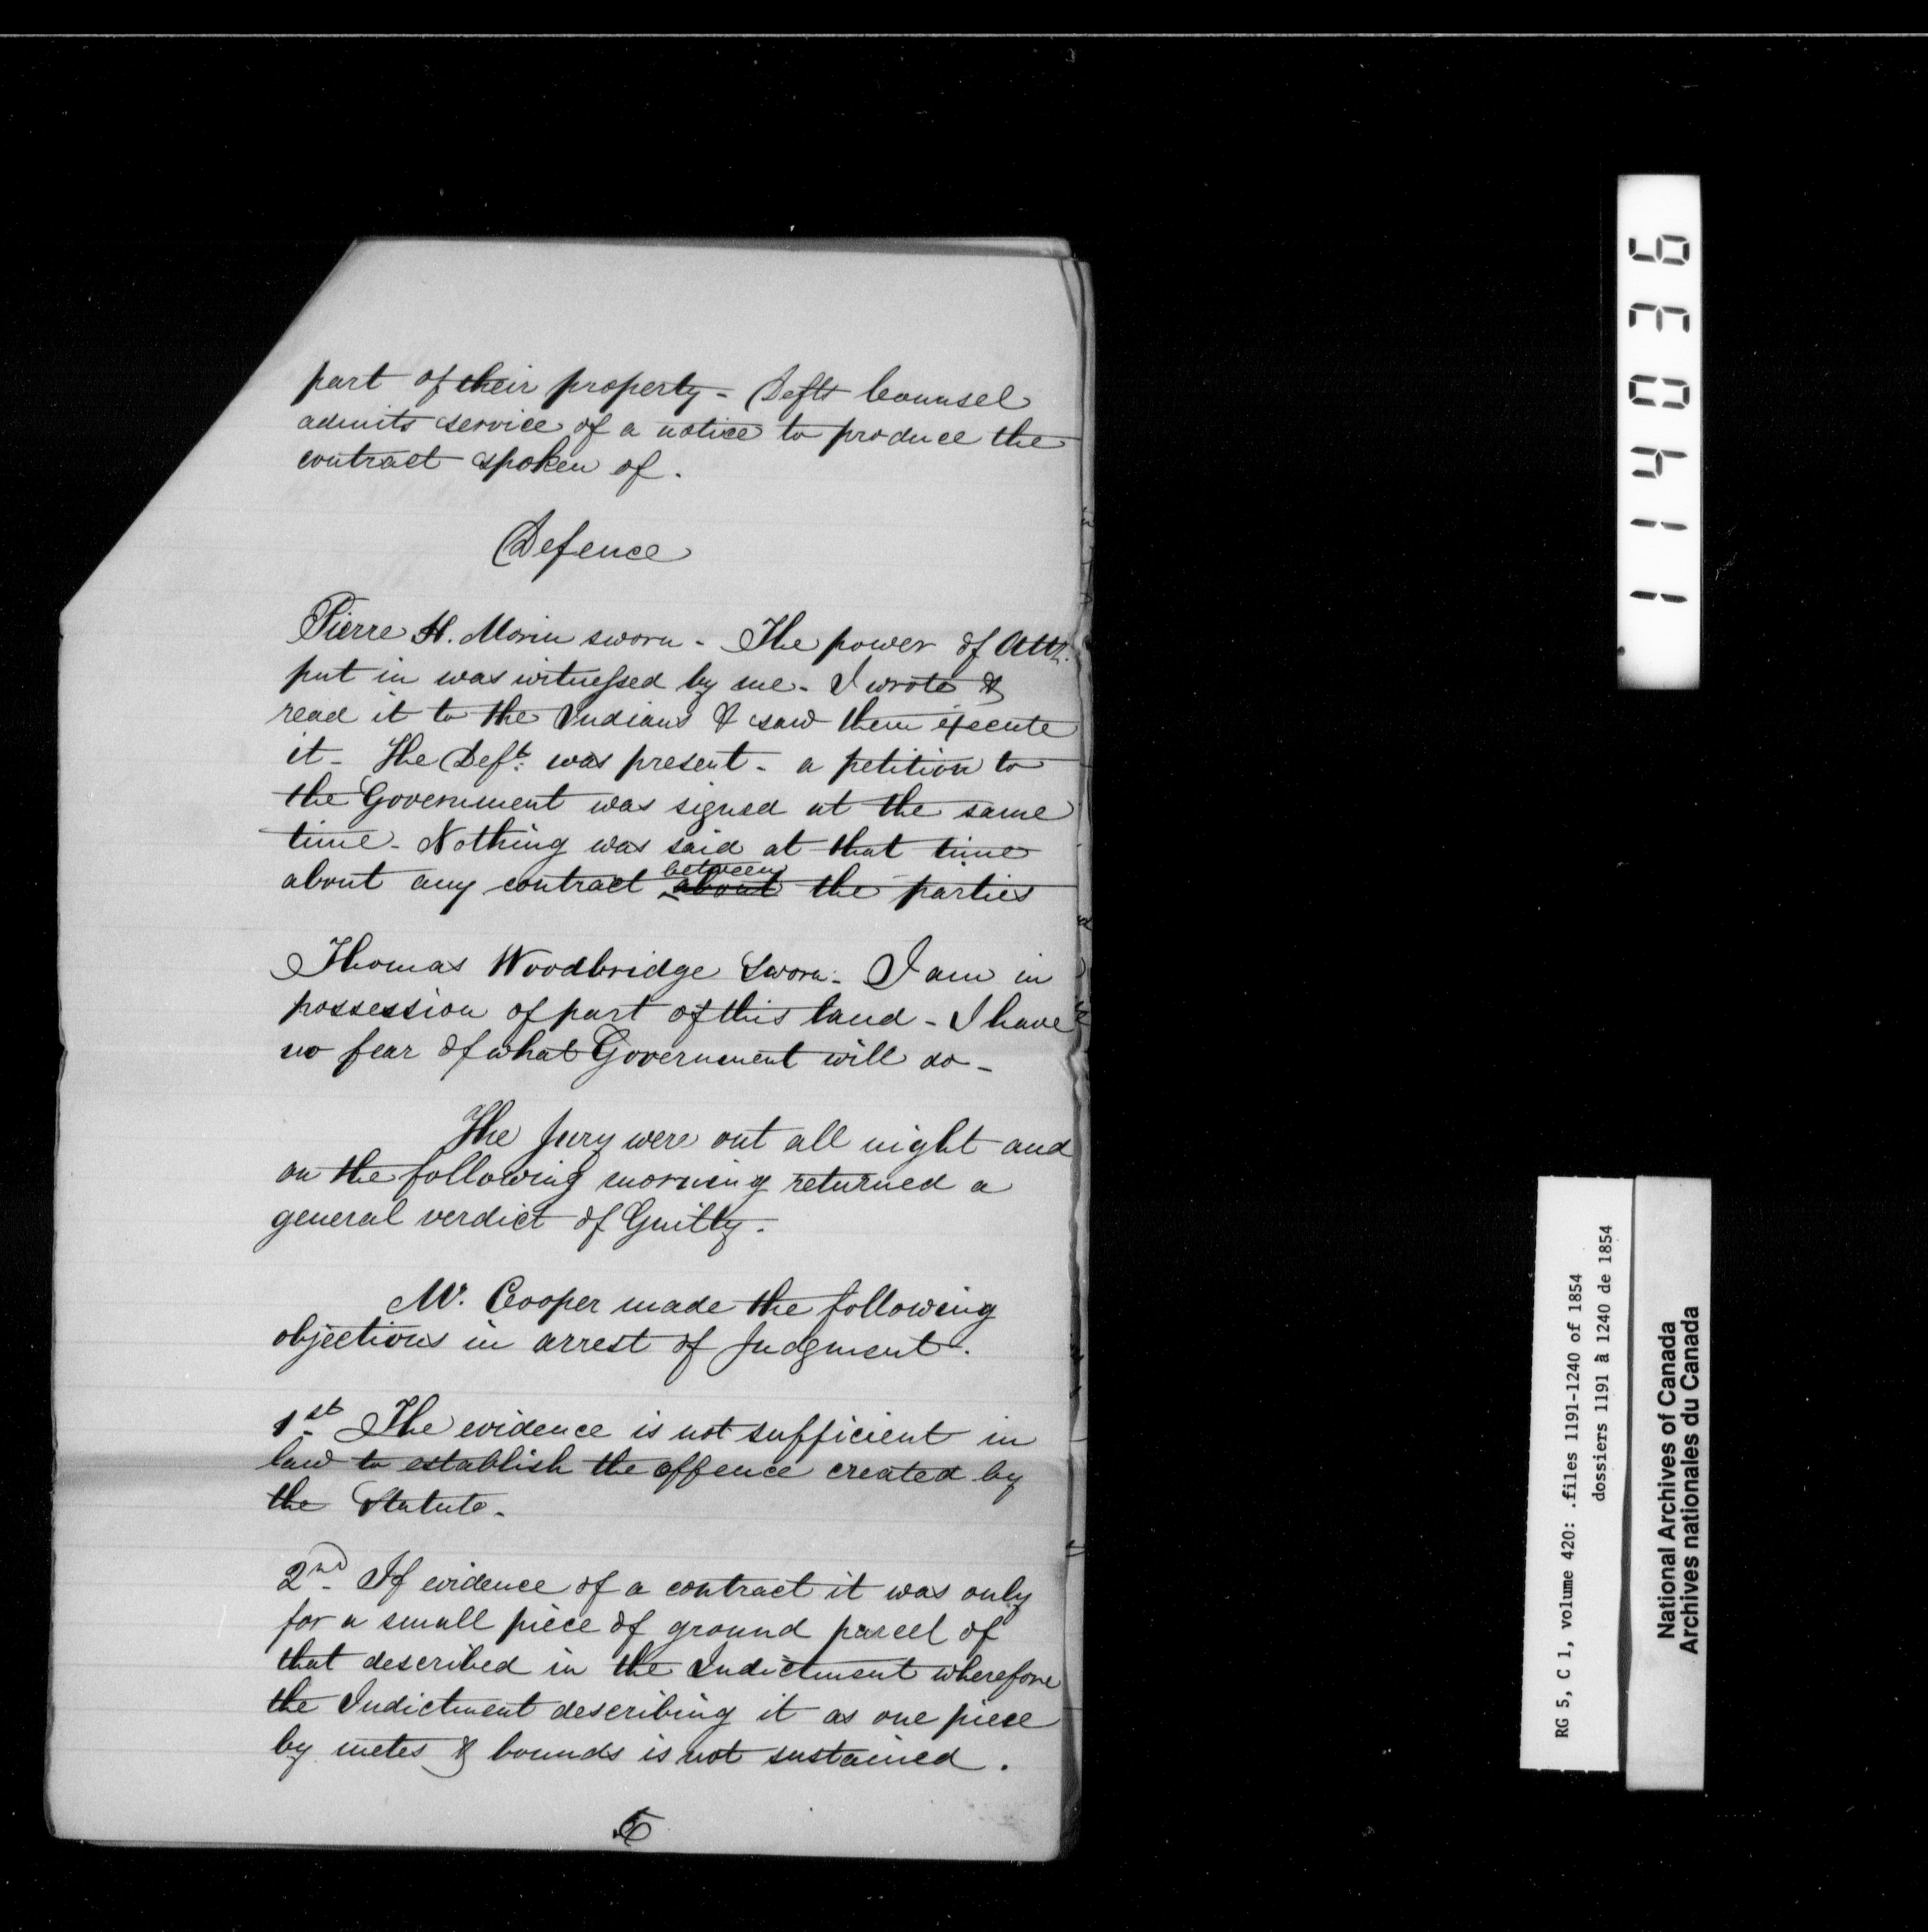 part of their property - Defts Counsel
admits service of a notice to produce the
contract spoken of.
Defence
Pierre H. Morin sworn - The power of Atty.
put in was witnessed by me - I wrote &
read it to the Indians & saw them execute
it - The Deft. was present - a petition to
the Government was signed at the same
time - Nothing was said at that time
between
about any contract about the parties
Thomas Woodbridge Sworn - I am in
possession of part of this land - I have
no fear of what Government will do -
The Jury were out all night and
on the following morning returned a
general verdict of Guilty.
Mr. Cooper made the following
objections in arrest of Judgment.
1st The evidence is not sufficient in
law to establish the offence created by
the Statute -
2nd If evidence of a contract it was only
for a small piece of ground parcel of
that described in the Indictment wherefore
the Indictment describing it as one piece
by metes & bounds is not sustained.
114036
RG 5, C 1, volume 420: .files 1191-1240 of 1854
dossiers 1191 à 1240 de 1854
National Archives of Canada
Archives nationales du Canada